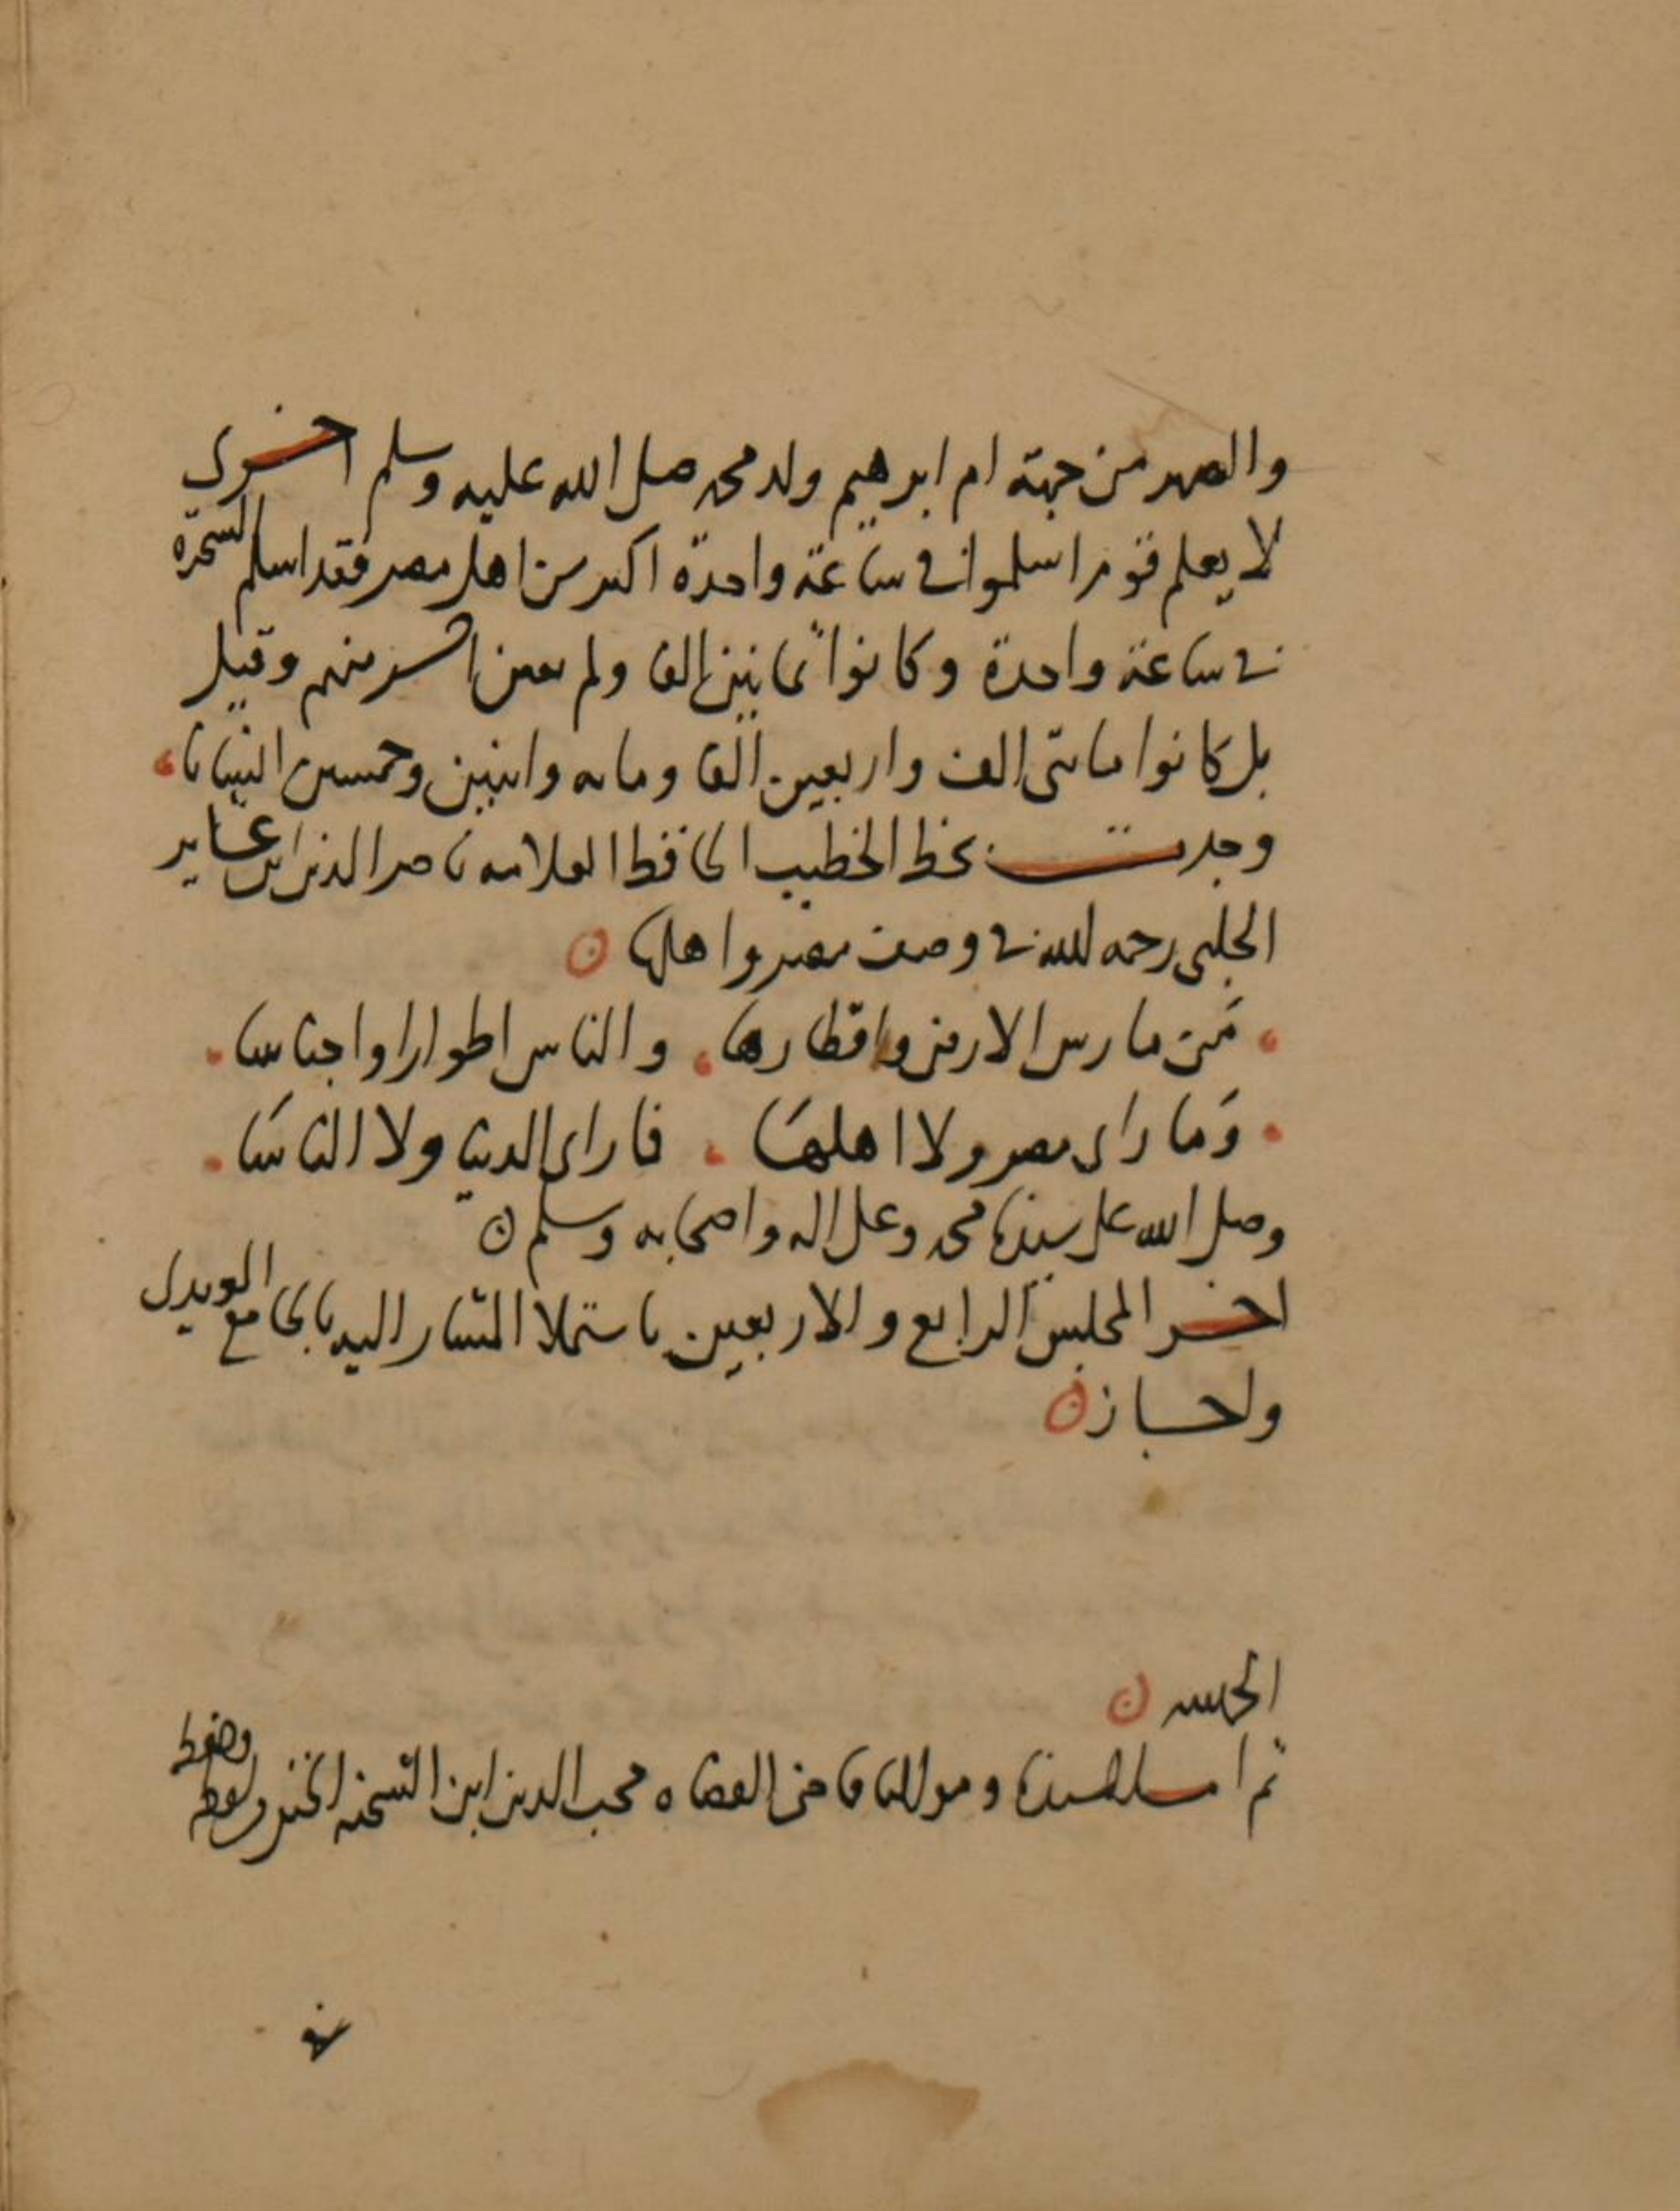 والصهر من جهة ام ابرهيم ولد محمد صلى الله عليه وسلم اخرى
لا يعلم قوم اسلموا في ساعة واحدة اكثر من اهل مصر فقد اسلم السحرة
في ساعة واحدة وكانوا ثمانين الفا ولم منهم وقيل
بل كانوا مائتي الف واربعين الفا ومايه واثنين وخمسين انسانا
وجدت بخط الخطيب الحافظ العلامه ناصر الدين ابن عشاير
الحلبي رحمه الله في وصف مصر واهلها
من مارس الارض واقطارها والناس اطوارا واجناسا
وما راى مصر ولا اهلها فما راى الدنيا ولا الناسا
وصلى الله على سيدنا محمد وعلى اله واصحابه وسلم
اخر المجلس الرابع والاربعين باستملا المشار اليه بالجامع
واجاز
الحمد لله
ثم املى سيدنا ومولانا قاضي القضاه محب الدين ابن الشحنه الحنفي